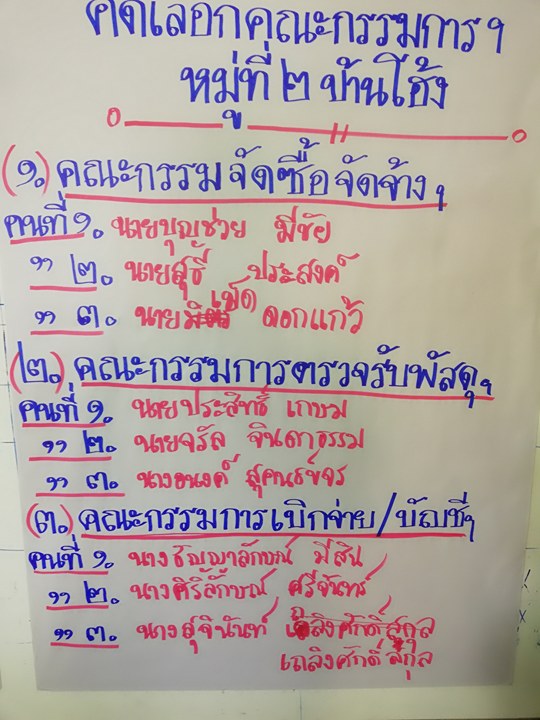 คัดเลือกคณะกรรมการฯ
หมู่ที่ ๒ บ้านโฮ้ง
(๑.) คณะกรรมจัดซื้อจัดจ้างฯ
คนที่ ๑. นายบุญช่วย มีชัย
" ๒. นายสุธี ประสงค์
" ๓. นาย เป็ด ดอกแก้ว
(๒.) คณะกรรมการตรวจรับพัสดุฯ
คนที่ ๑. นายประสิทธิ์ เกษม
" ๒. นายจรัล จินดาธรรม
" ๓. นางอนงค์ สุคนธ์ขจร
(๓.) คณะกรรมการเบิกจ่าย/บัญชีฯ
คนที่ ๑. นางธัญญาลักษณ์ มีสิน
" ๒. นางศิริลักษณ์ ศรีจันทร์
" ๓. นางสุจินันท์
เถลิงศักดิ์สกุล